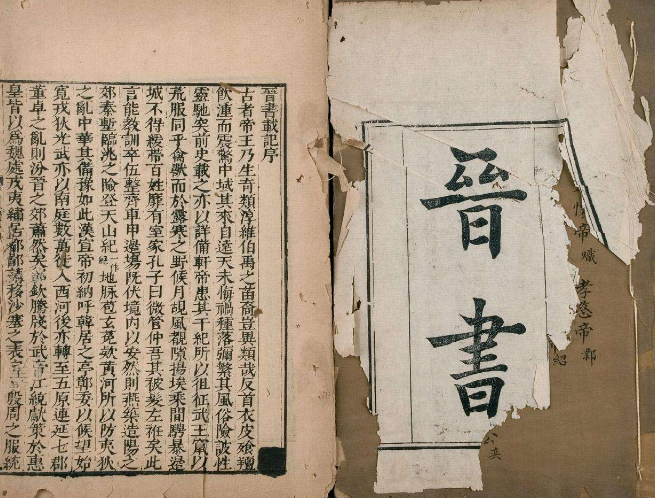 帝熾 孝愍帝鄴
紹
公奕
晉書
晉書載記序
古者帝王乃生奇類淳維伯禹之苗裔豈異類哉反首衣皮飧羶
飲湩而震驚中域其來自遠天未悔禍種落彌繁其風俗險詖性
靈馳突前史載之亦以詳備軒帝患其干紀所以徂征武王竄以
荒服同乎禽獸而於露寒之野候月覘風覩隙揚埃乘間騁暴邊
城不得緩帶百姓靡有室家孔子曰微管仲吾其被髮左袵矣此
言能教訓卒伍整齊車甲邊塲既伏境内以安然則燕築造陽之
郊秦塹臨洮之險登天山紀一作絕地脉苞玄菟欵黃河所以防夷狄
之亂中華其備豫如此漢宣帝初納呼韓居之亭鄣委以候望始
寬戎狄光武亦以南庭數萬徙入西河後亦轉至五原連延七郡
董卓之亂則汾晉之郊蕭然矣郭欽騰牋於武帝江統獻策於惠
皇皆以爲魏處戎夷繡居都鄙請移沙塞之表定一殷周之服統